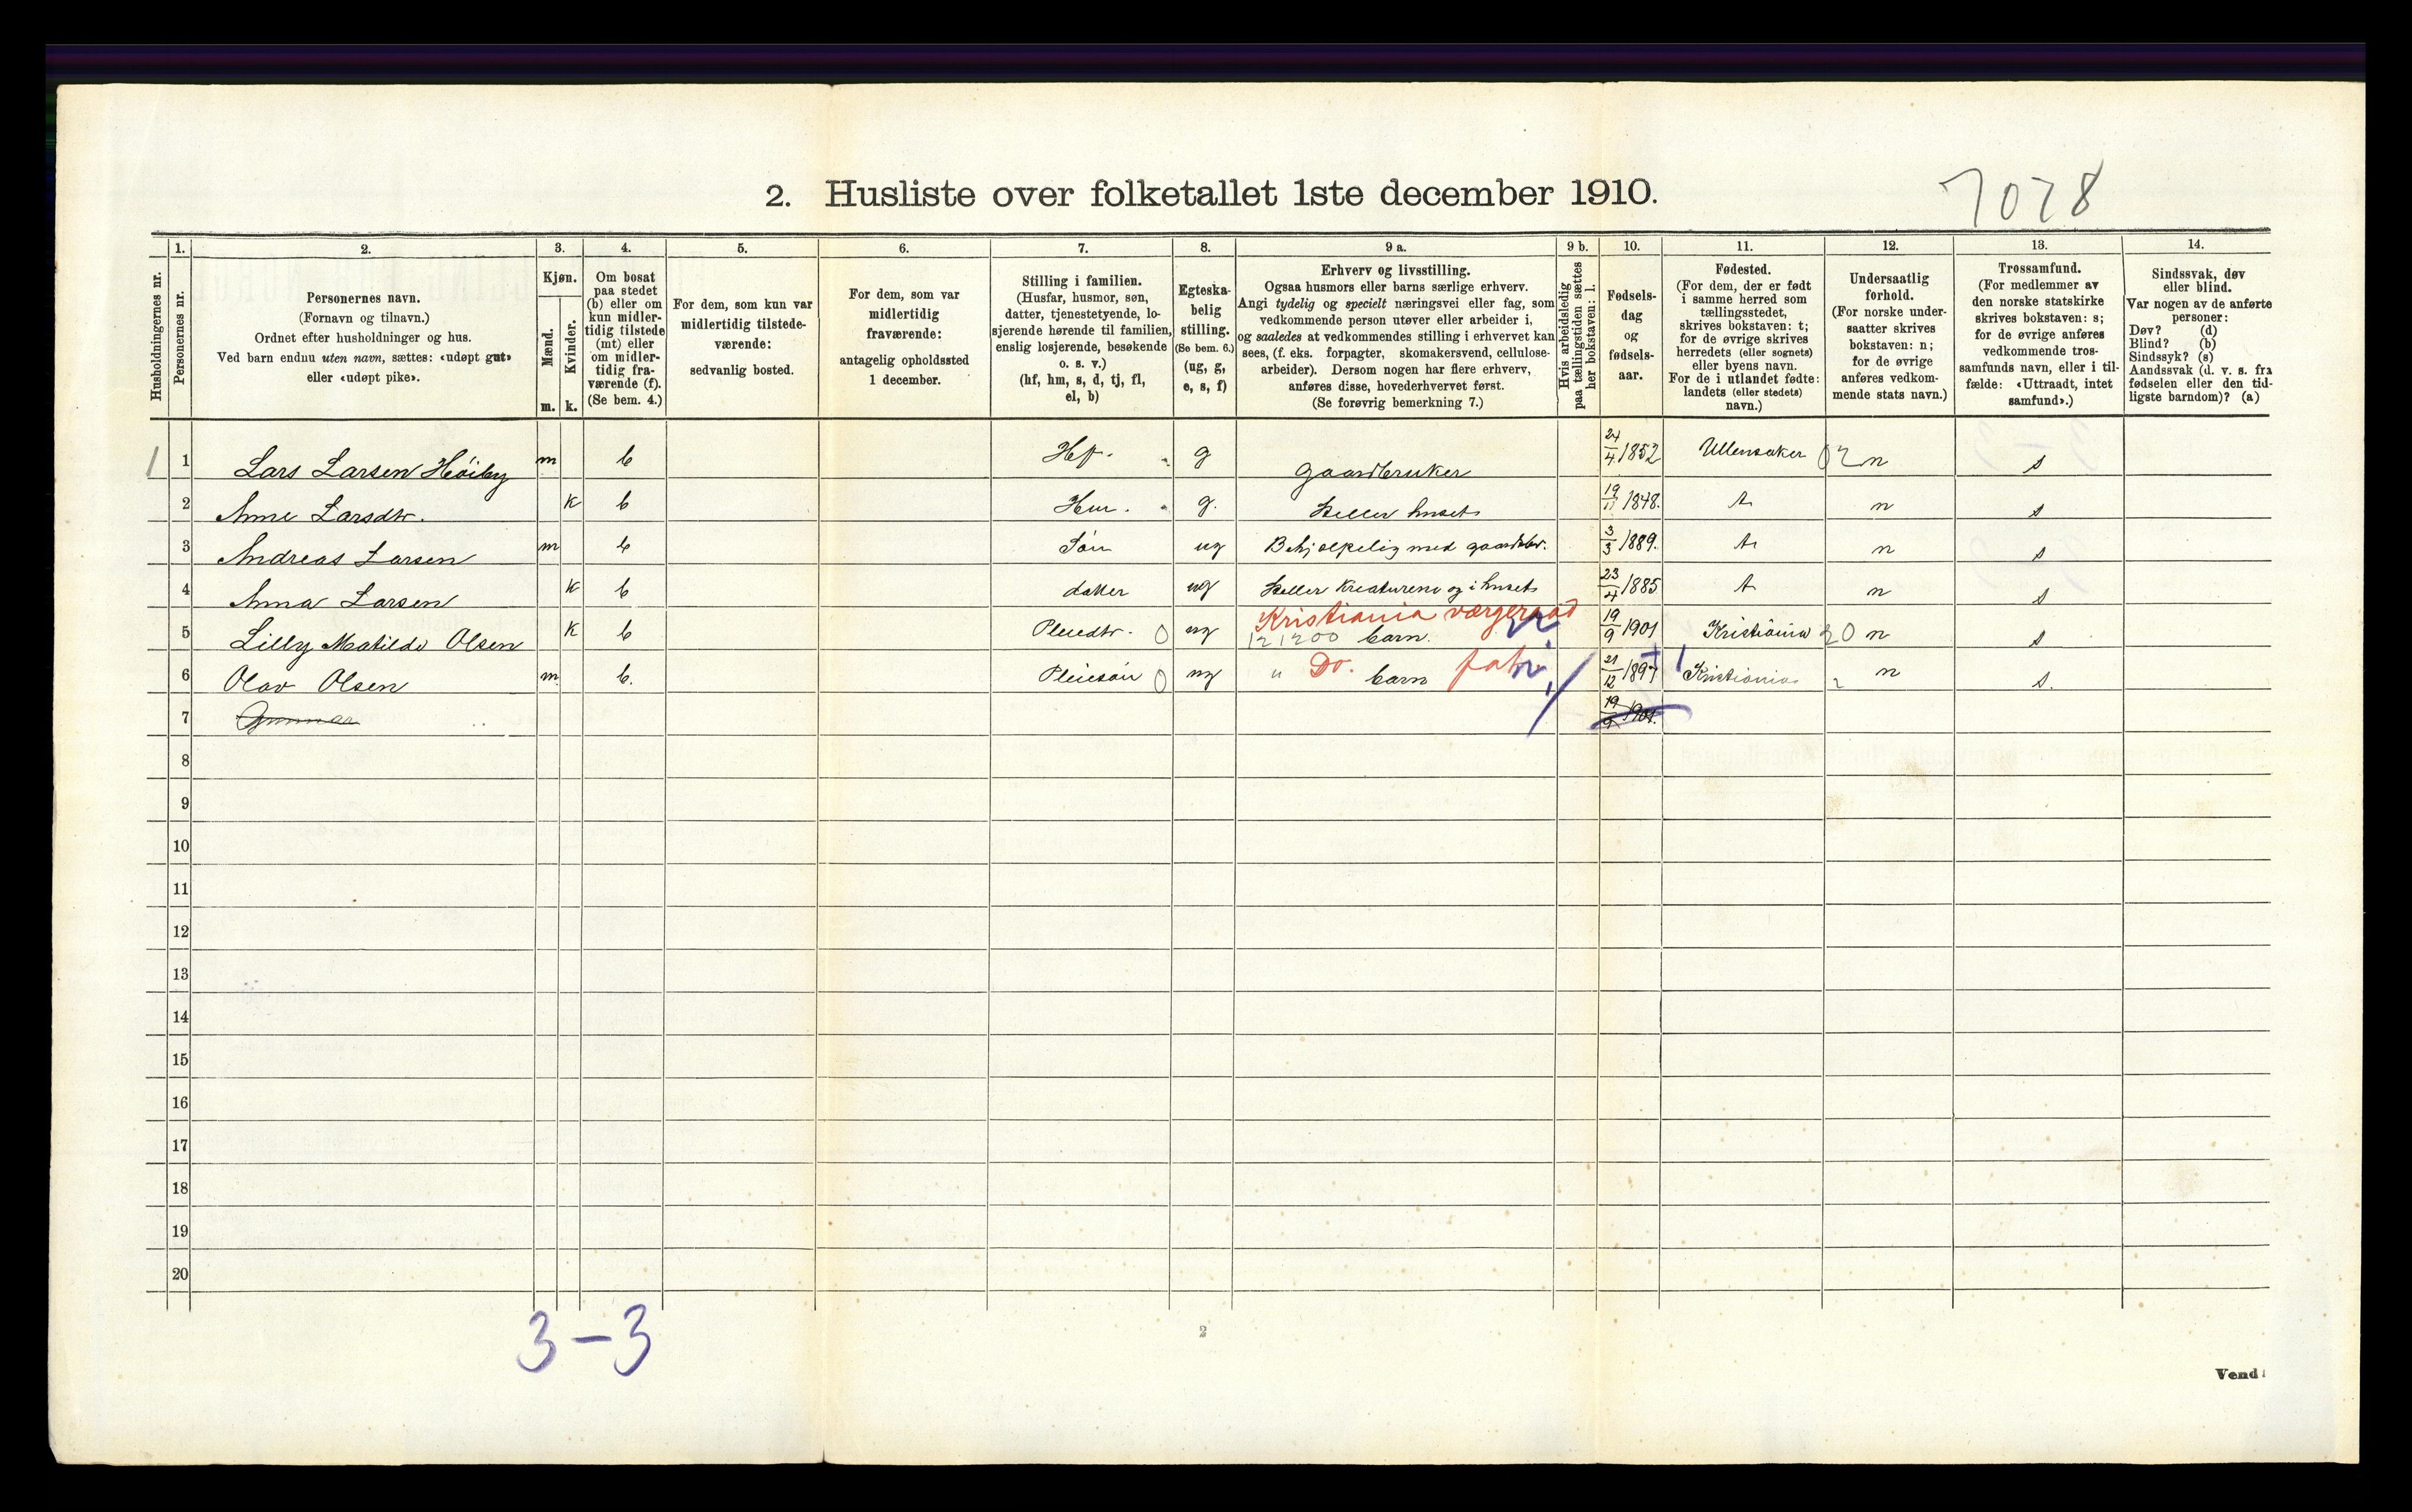 2. Husliste over folketallet 1ste december 1910.
7078
1. 2. 3. 4. 5. 6. 7. 8. 9 a. 9 b. 10. 11. 12. 13. 14.
Husholdningernes nr.
Personernes nr.
Personernes navn.
(Fornavn og tilnavn.)
Ordnet efter husholdninger og hus.
Ved barn endnu uten navn, sættes: «udøpt gut»
eller «udøpt pike».
Kjøn.
Mænd.
m.
Kvinder.
k.
Om bosat
paa stedet
(b) eller om
kun midler-
tidig tilstede
(mt) eller
om midler-
tidig fra-
værende (f).
(Se bem. 4.)
For dem, som kun var
midlertidig tilstede-
værende:
sedvanlig bosted.
For dem, som var
midlertidig
fraværende:
antagelig opholdssted
1 december.
Stilling i familien.
(Husfar, husmor, søn,
datter, tjenestetyende, lo-
sjerende hørende til familien,
enslig losjerende, besøkende
o. s. v.)
(hf, hm, s, d, tj, fl,
el, b)
Egteska-
belig
stilling.
(Se bem. 6.)
(ug, g,
e, s, f)
Erhverv og livsstilling.
Ogsaa husmors eller barns særlige erhverv.
Angi tydelig og specielt næringsvei eller fag, som
vedkommende person utøver eller arbeider i,
og saaledes at vedkommendes stilling i erhvervet kan
sees, (f. eks. forpagter, skomakersvend, cellulose-
arbeider). Dersom nogen har flere erhverv,
anføres disse, hovederhvervet først.
(Se forøvrig bemerkning 7.)
Hvis arbeidsledig
paa tællingstiden sættes
her bokstaven: l.
Fødsels-
dag
og
fødsels-
aar.
Fødested.
(For dem, der er født
i samme herred som
tællingsstedet,
skrives bokstaven: t;
for de øvrige skrives
herredets (eller sognets)
eller byens navn.
For de i utlandet fødte:
landets (eller stedets)
navn.)
Undersaatlig
forhold.
(For norske under-
saatter skrives
bokstaven: n;
for de øvrige
anføres vedkom-
mende stats navn.)
Trossamfund.
(For medlemmer av
den norske statskirke
skrives bokstaven: s;
for de øvrige anføres
vedkommende tros-
samfunds navn, eller i til-
fælde: «Uttraadt, intet
samfund».)
Sindssvak, døv
eller blind.
Var nogen av de anførte
personer:
Døv? (d)
Blind? (b)
Sindssyk? (s)
Aandssvak (d. v. s. fra
fødselen eller den tid-
ligste barndom)? (a)
1 1 Lars Larsen Høiby m b Hf. g gaardbruker 24/4 1852 Ullensaker 02 n s
2 Anne Larsdtr. k b Hm. g. Steller huset 19/11 1848. t n s
3 Andreas Larsen m b Søn ug Behjælpelig med gaardsbr. 3/3 1889. t n s
4 Anna Larsen k b datter ug Steller kreaturene og i huset 23/4 1885 t n s
Kristiania værgeraad
5 Lilly Matilde Olsen k b Pleiedtr. 0 ug 121200 barn. 19/9 1901 Kristiania 20 n s
6 Olav Olsen m b. Pleiesøn 0 ug " Do. barn 21/12 1897 Kristiania n s.
7 Gunnar 19/9 1901.
8
9
10
11
12
13
14
15
16
17
18
19
20
3 – 3
2
Vend!